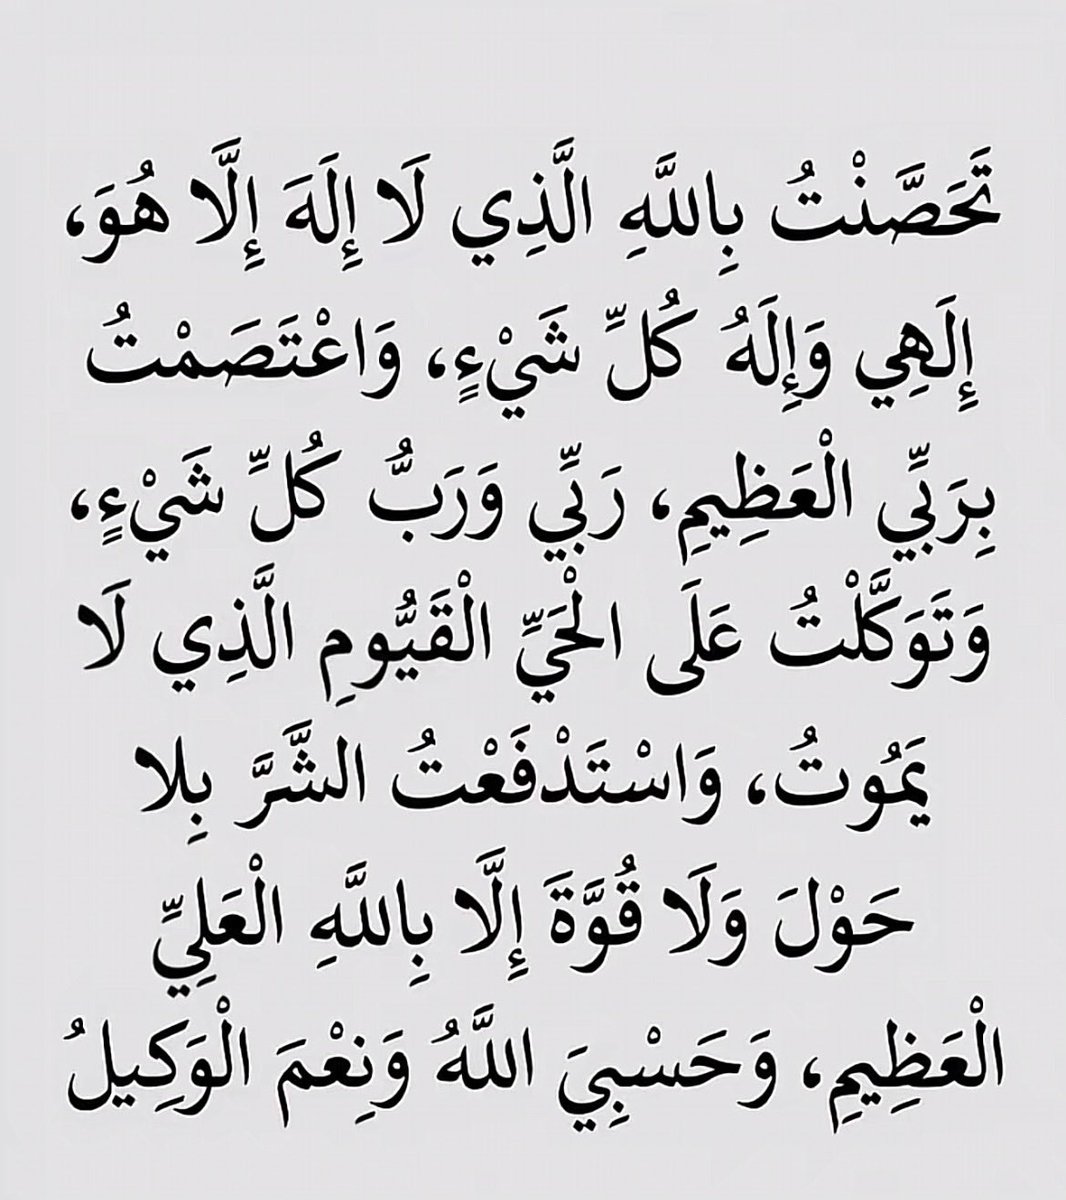 تَحَصَّنْتُ بِاللَّهِ الَّذِي لَا إِلَهَ إِلَّا هُوَ،
إِلَهِي وَإِلَهُ كُلِّ شَيْءٍ، وَاعْتَصَمْتُ
بِرَبِّي الْعَظِيمِ، رَبِّي وَرَبُّ كُلِّ شَيْءٍ،
وَتَوَكَّلْتُ عَلَى الْحَيِّ الْقَيُّومِ الَّذِي لَا
يَمُوتُ، وَاسْتَدْفَعْتُ الشَّرَّ بِلا
حَوْلَ وَلَا قُوَّةَ إِلَّا بِاللَّهِ الْعَلِيِّ
الْعَظِيمِ، وَحَسْبِيَ اللَّهُ وَنِعْمَ الْوَكِيلُ